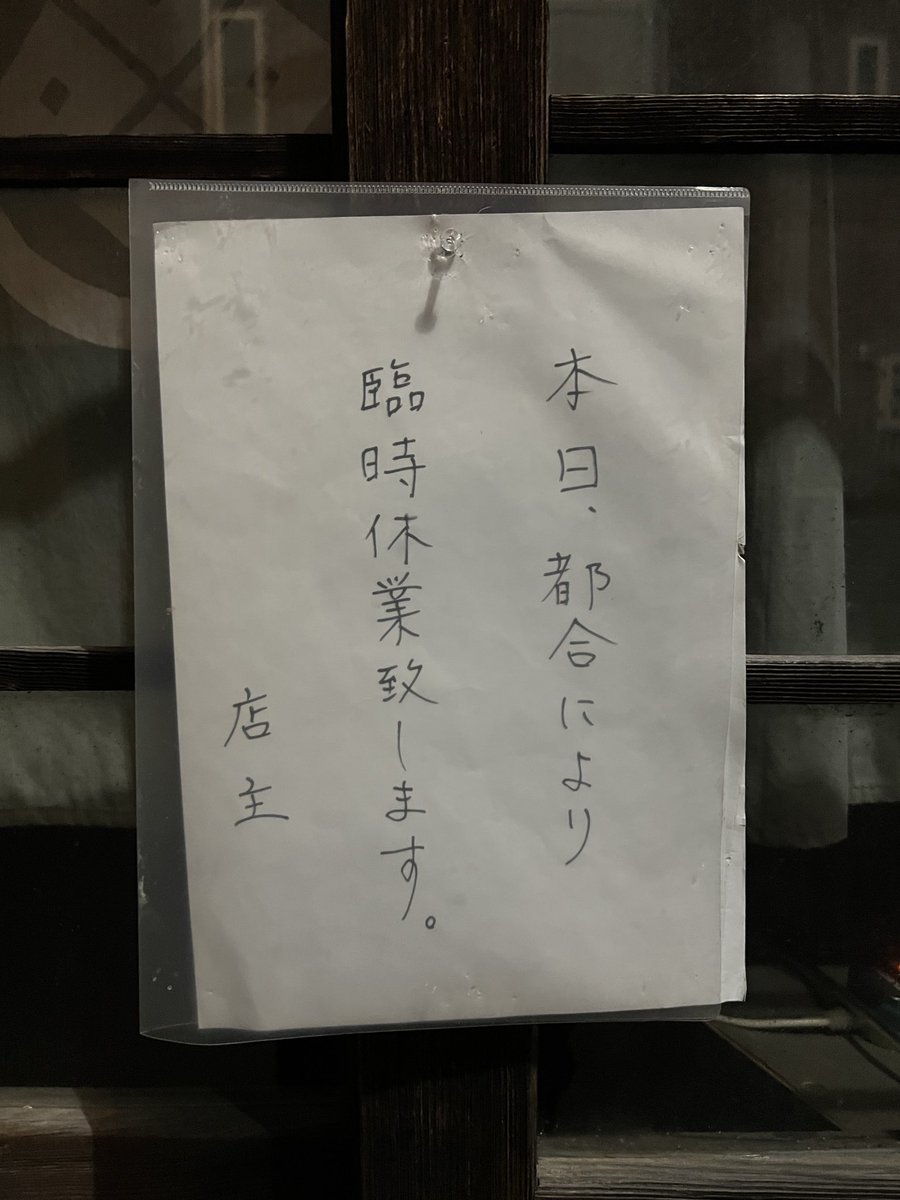 本日、都合により
臨時休業致します。
店主